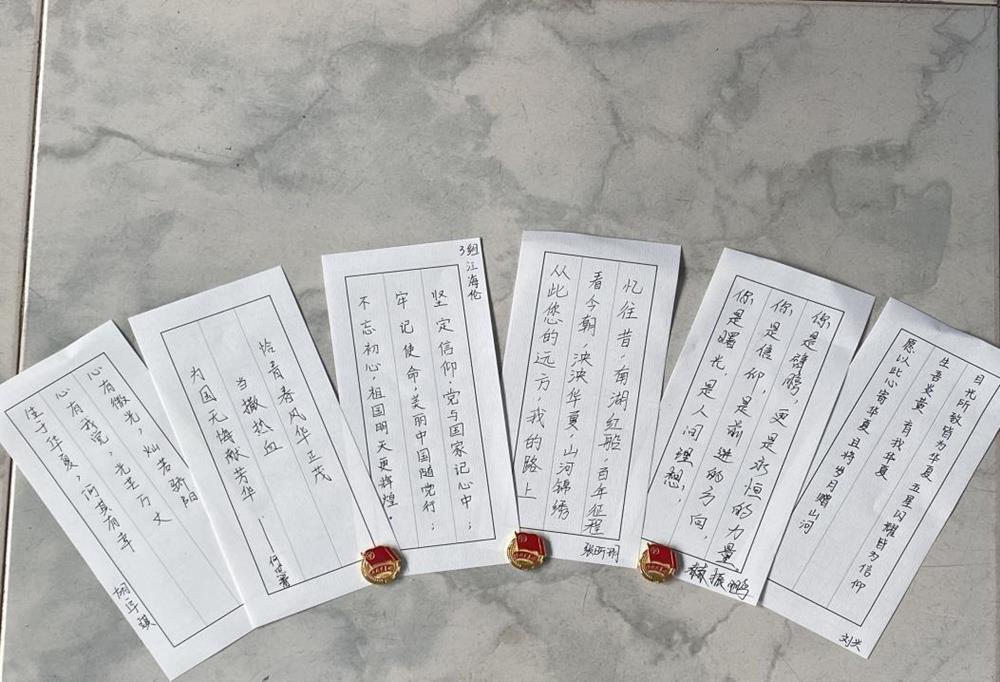 心有微光，灿若骄阳
心有我党，光芒万丈
于华夏，何其有幸
恰青春风华正茂
当撒热血
为国无悔献芳华.
3组江海伦
坚定信仰,党与国家记心中;
牢记使命,美丽中国随党行;
不忘初心,祖国明天更辉煌.
忆往昔,南湖红船 百年征程
看今朝,泱泱华夏,山河锦绣
从此您的远方,我的路上
你是鲲鹏，更是永恒的力量。
你是信仰，是前进的方向，
你是曙光，是人间理想，
振鹏
目光所致皆为华夏 五星闪耀皆为信仰
生吾炎黄 有我华夏
愿以此心寄华夏 且将岁月赠山河
刘兴